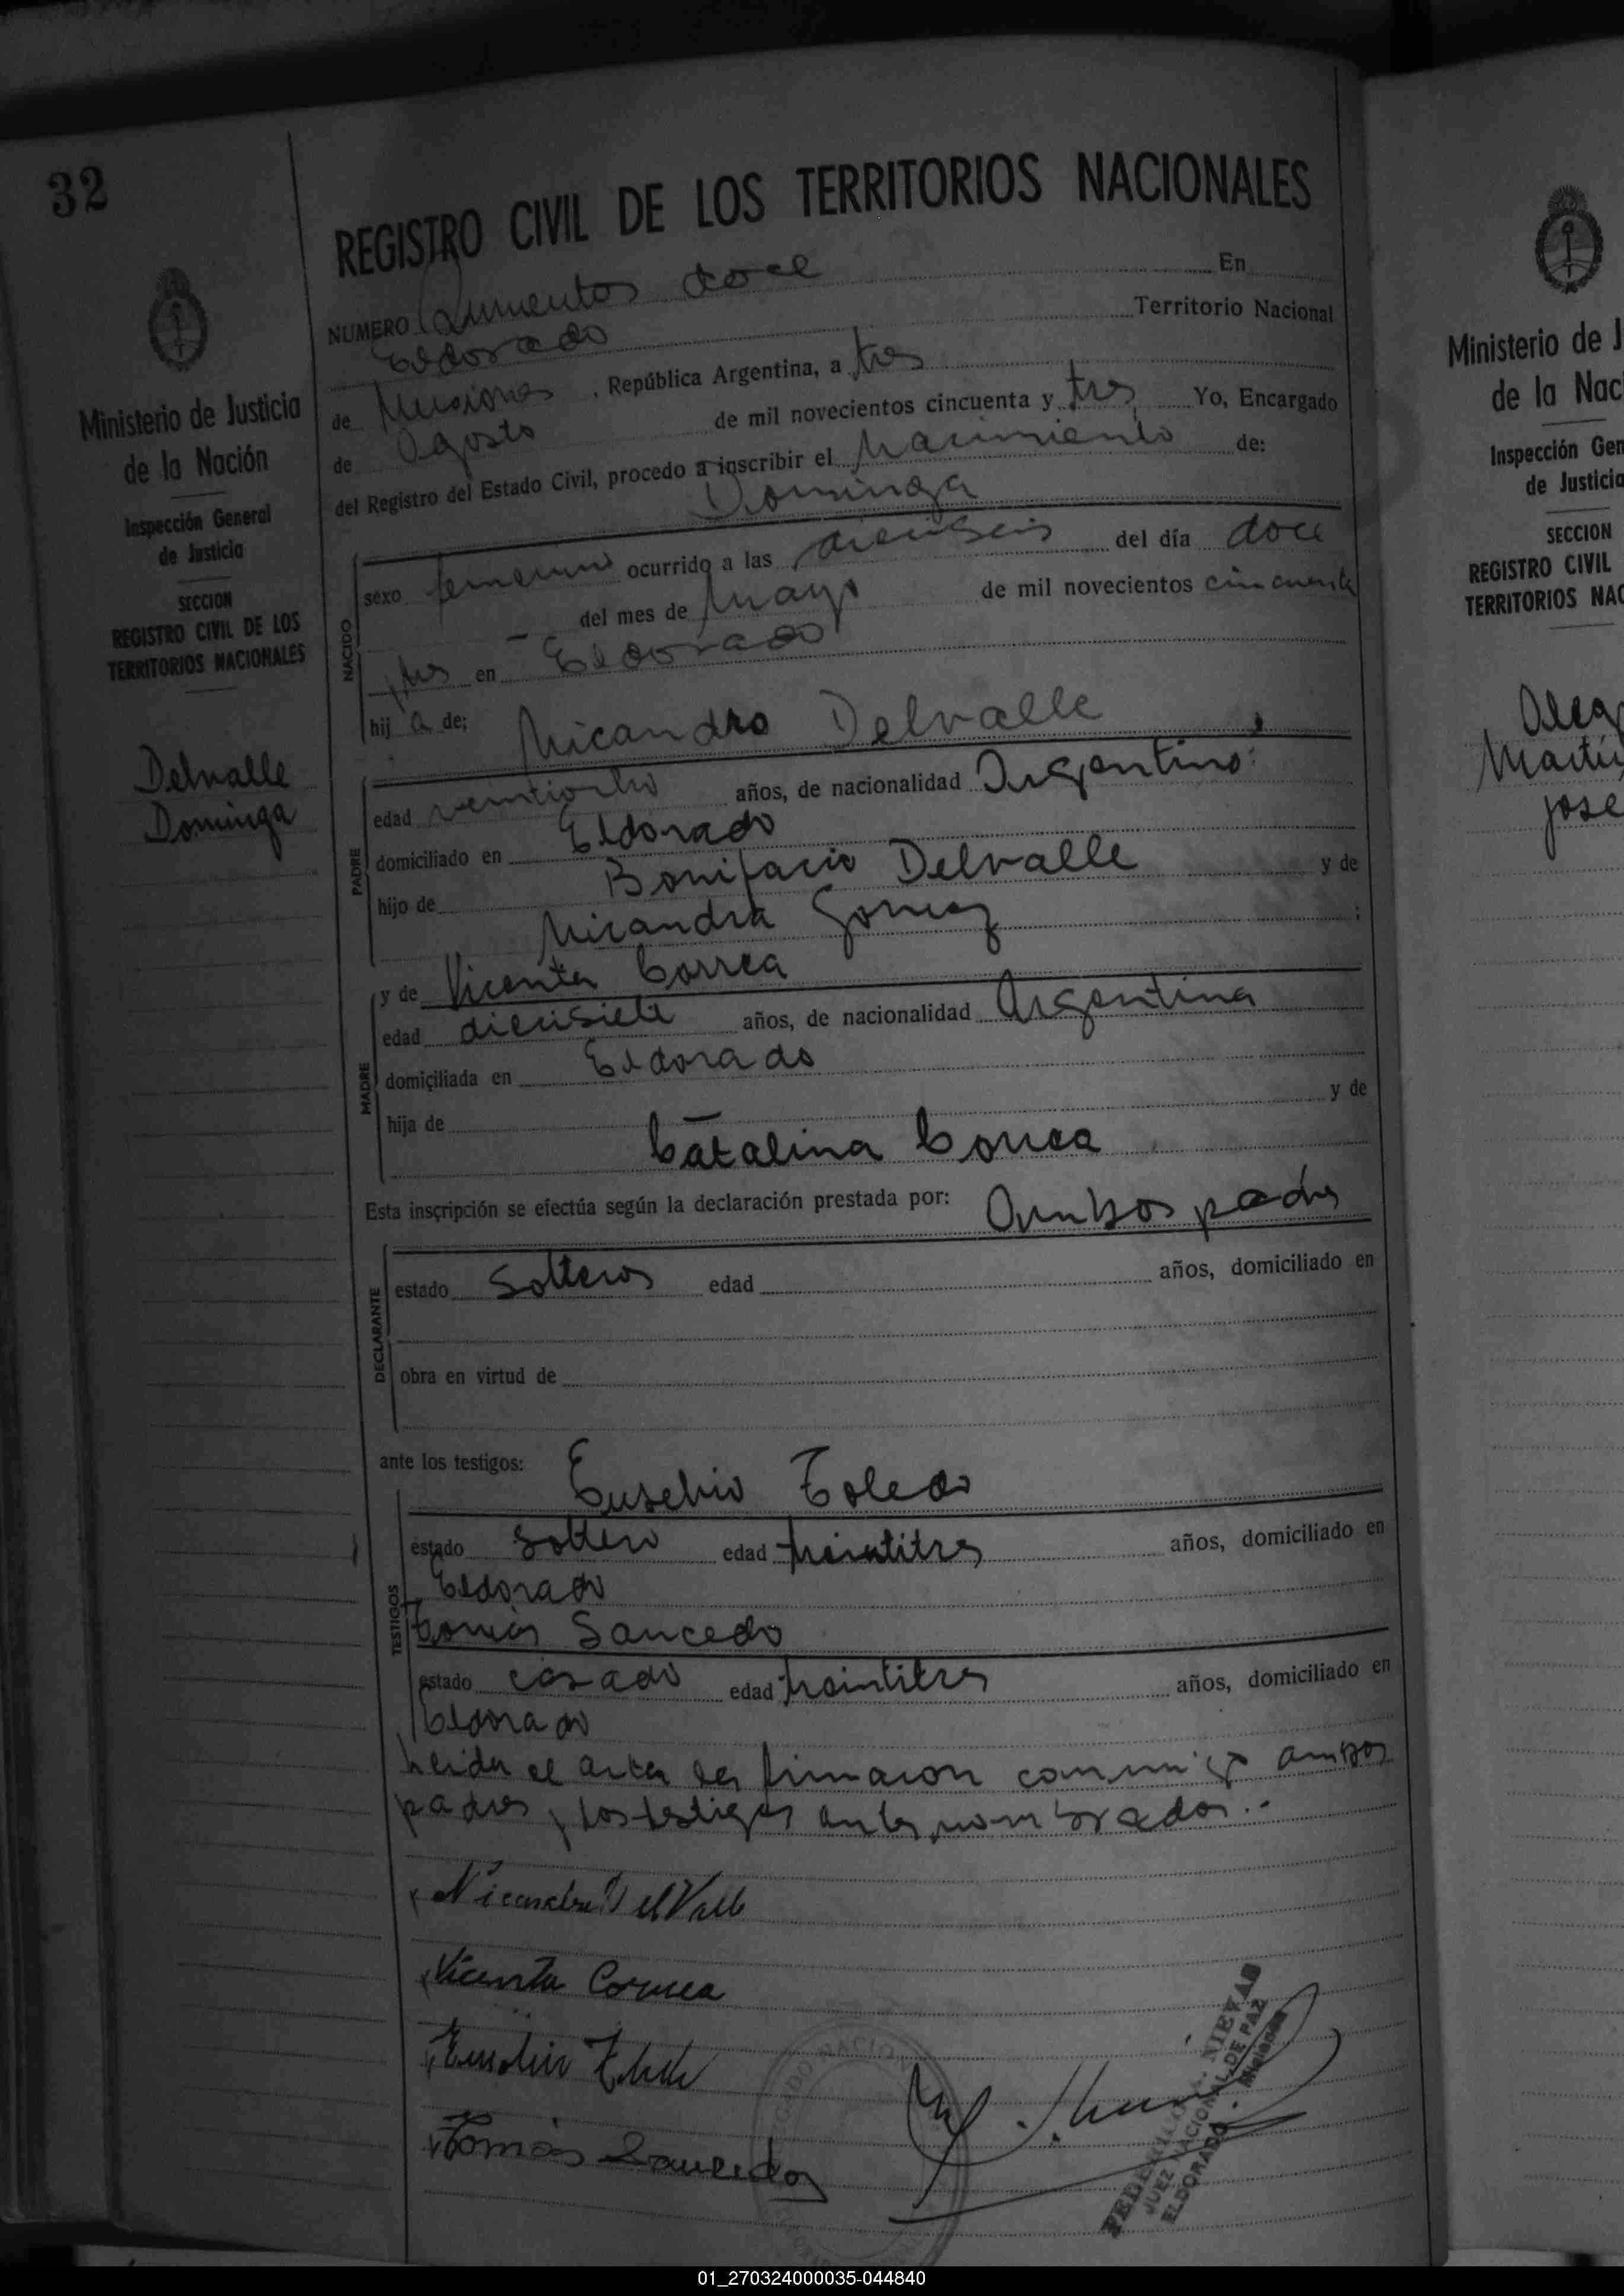 32
Ministerio de Justicia
de la Nación
Inspección General
de Justicia
SECCION
REGISTRO CIVIL DE LOS
TERRITORIOS NACIONALES
Delvalle
Dominga
REGISTRO CIVIL DE LOS TERRITORIOS NACIONALES
NUMERO doce En
Eldorado Territorio Nacional
de Misiones, República Argentina, a tres
de Agosto de mil novecientos cincuenta y tres Yo, Encargado
del Registro del Estado Civil, procedo a inscribir el nacimiento de:
Dominga
NACIDO
sexo femenino ocurrido a las dieciseis del día doce
del mes de Mayo de mil novecientos cincuenta
tres en Eldorado
hija de; Nicandro Delvalle
PADRE
edad veintiocho años, de nacionalidad Argentino
domiciliado en Eldorado
hijo de Bonifacio Delvalle y de
Nicandra Gomez ;
MADRE
y de Vicenta Correa
edad diecisiete años, de nacionalidad Argentina
domiciliada en Eldorado
hija de y de
Catalina Correa
Esta inscripción se efectúa según la declaración prestada por: Ambos padres
DECLARANTE
estado Solteros edad años, domiciliado en
obra en virtud de
ante los testigos: Eusebio Toledo
TESTIGOS
estado soltero edad treintitres años, domiciliado en
Eldorado
Tomás Saucedo
estado casado edad treintitres años, domiciliado en
Eldorado
Leida el acta la firmaron conmigo ambos
padres y los testigos antes nombrados.-
Nicandro Del Valle
Vicenta Correa
Eusebio Toledo
Tomás Saucedo
NIEVAS
JUEZ NACIONAL DE PAZ
ELDORADO - Misiones
Ministerio de J
de la Nac
Inspección Gen
de Justicia
SECCION
REGISTRO CIVIL
TERRITORIOS NAC
Martin
Jose
01_270324000035-044840